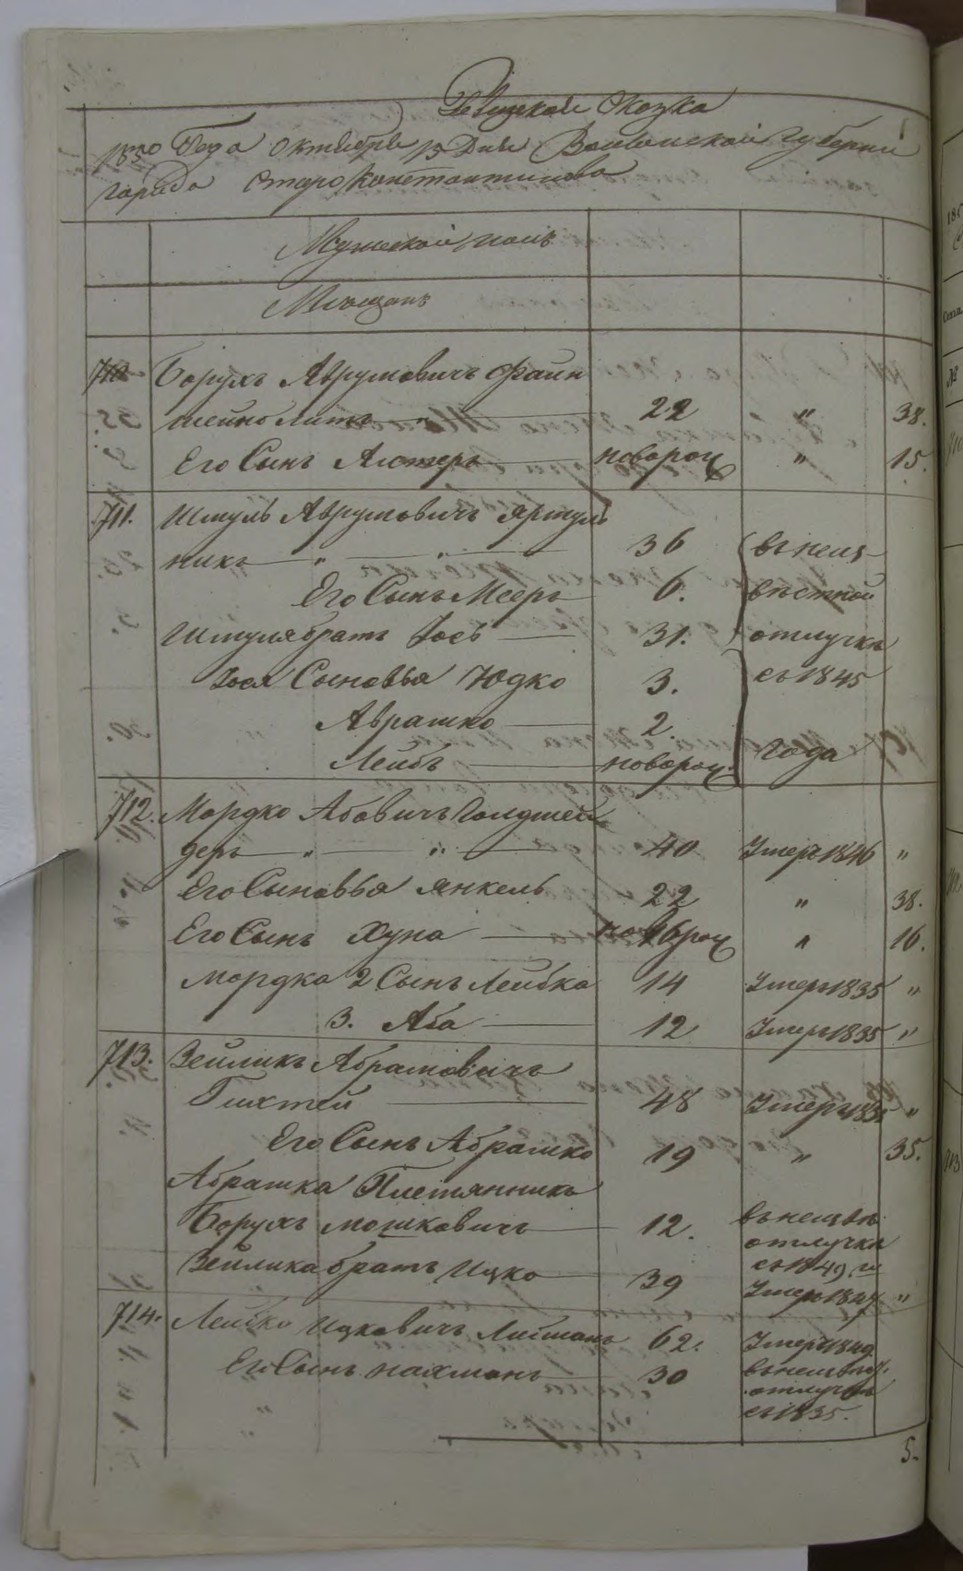 Ревизская Сказка
1850 Года Октября 15 Дня Волынской Губернии
города Староконстантинова
Мужеской полъ
Мещанъ
710. Борухъ Аврумовичъ Файн
" 22 " 38.
Его Сынъ Алтеръ новорож " 15.
711. Шмуль Аврумовичъ
никъ " " 36 въ неиз-
Его Сынъ Мееръ 6. вестной
Шмуля братъ Іосъ 31. отлучке
Іося Сыновья Юдко 3. съ 1845
Аврашко 2.
Лейбъ новорож. года
712. Мордко Абовичъ Голдшней
деръ " " 40 Умеръ 1846 "
Его Сыновья Янкель 22 " 38.
Его Сынъ Хуна новорож " 16.
Мордка 2 Сынъ Лейбка 14 Умеръ 1835 "
3. Аба 12 Умеръ 1835 "
713. Зейликъ Абрамовичъ
48 Умеръ 1835 "
Его Сынъ Абрашко 19 " 35.
Абрашка Племянникъ
Борухъ Мошковичъ 12. въ неизвѣ
отлучке
съ 1849 го
Зейлика братъ Ицко 39 Умеръ "
714. Лейбко Ицковичъ 62. Умеръ
Его Сынъ Нахманъ 30 въ неизвѣс.
отлучке
съ 1835.
5.